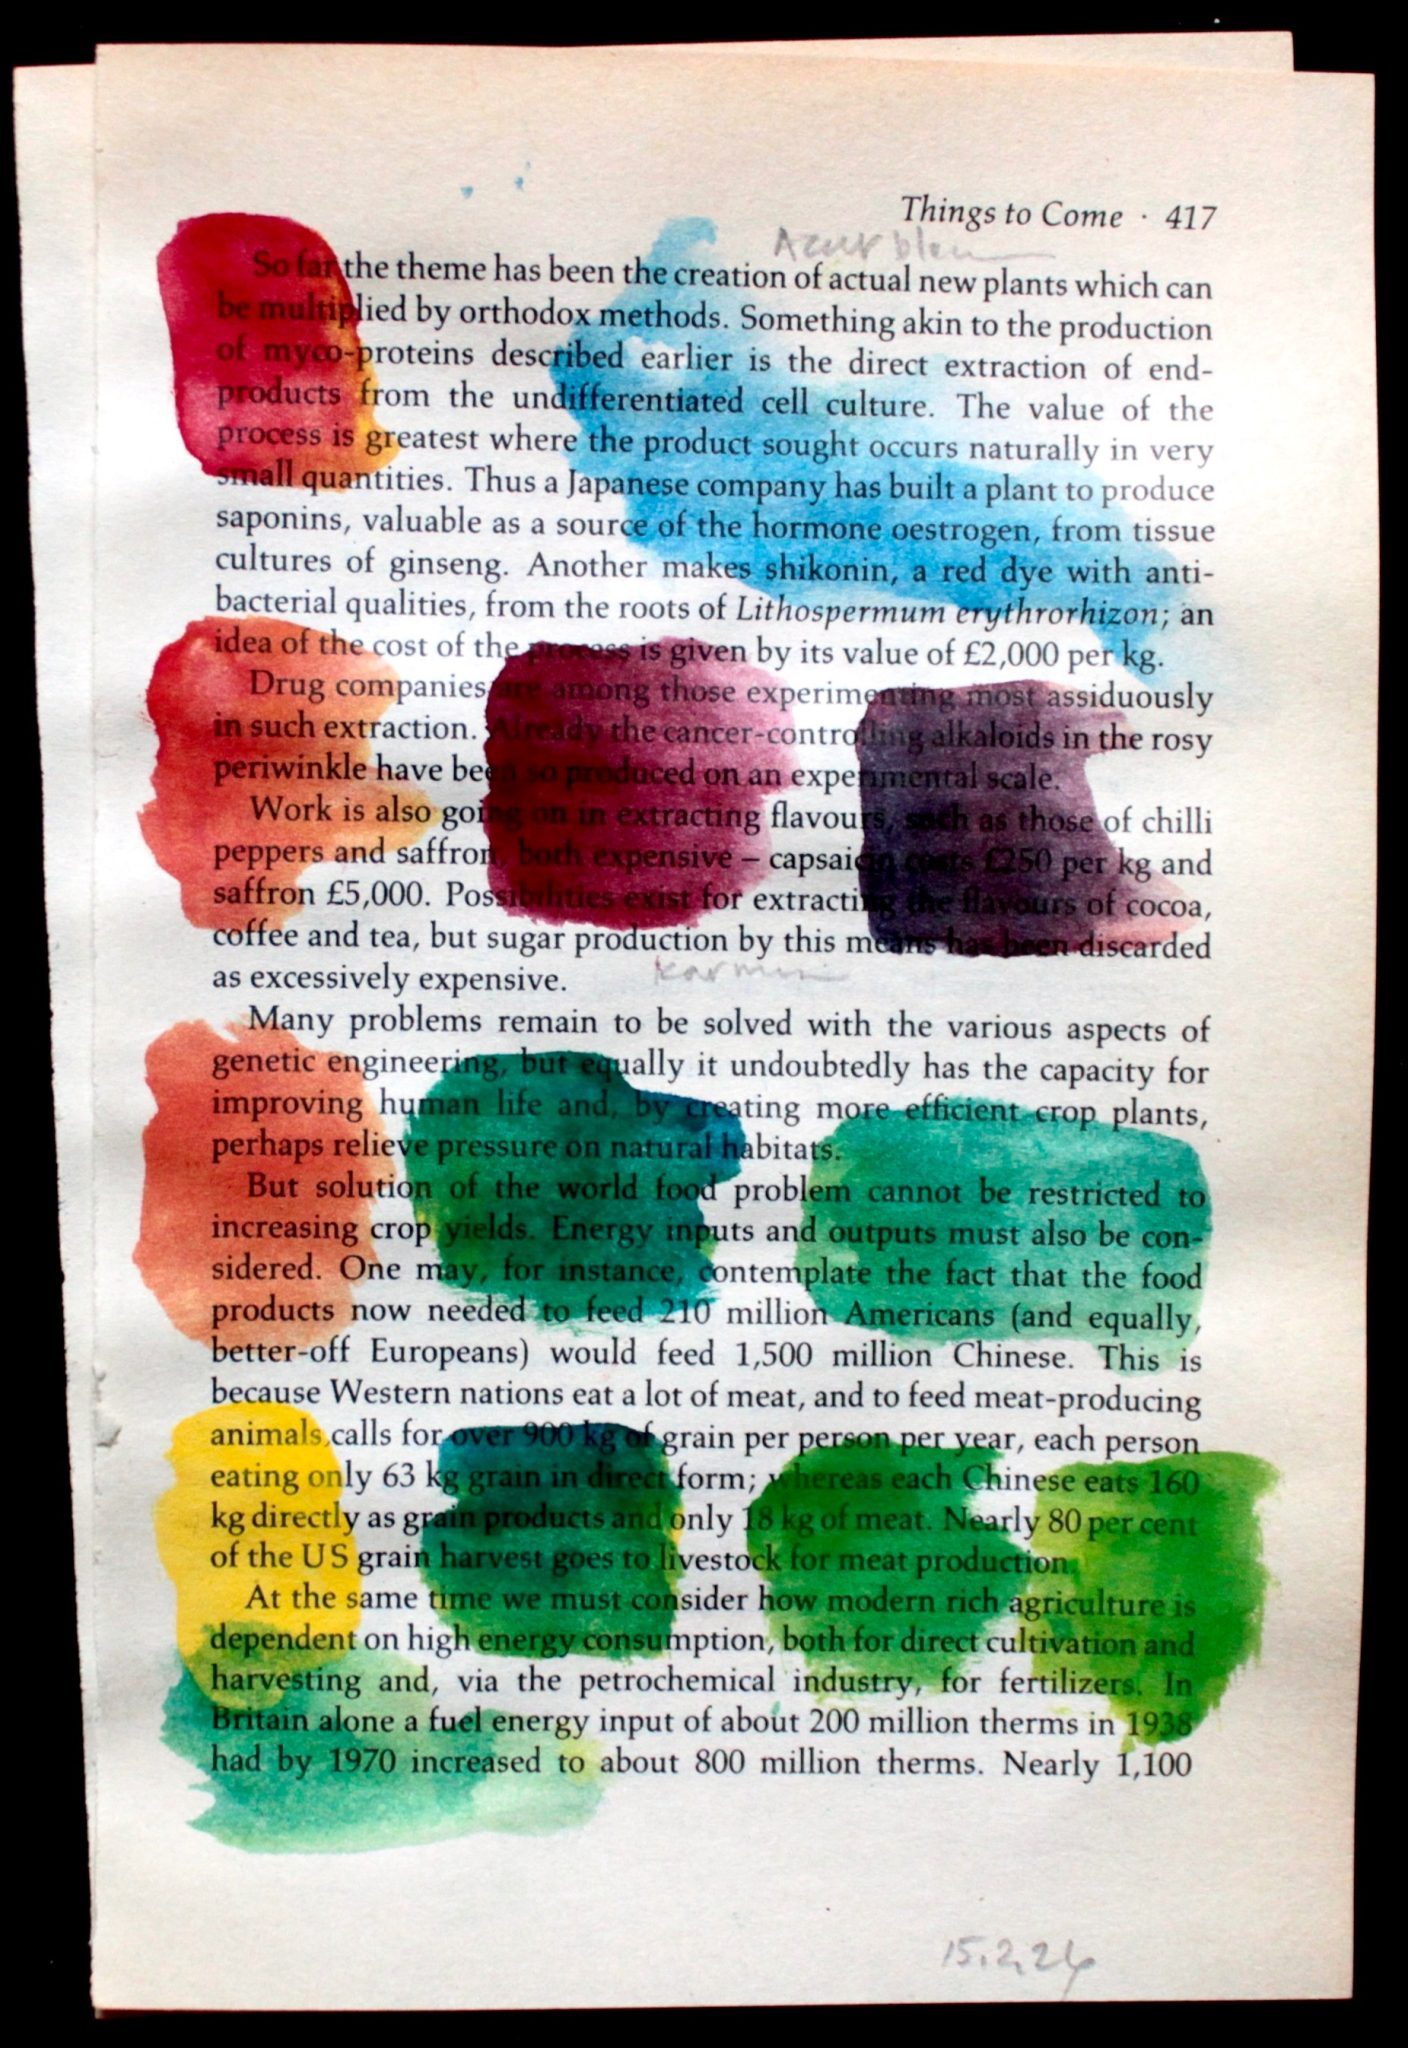 Things to Come · 417
Azur blau
So far the theme has been the creation of actual new plants which can
be multiplied by orthodox methods. Something akin to the production
of myco-proteins described earlier is the direct extraction of end-
products from the undifferentiated cell culture. The value of the
process is greatest where the product sought occurs naturally in very
small quantities. Thus a Japanese company has built a plant to produce
saponins, valuable as a source of the hormone oestrogen, from tissue
cultures of ginseng. Another makes shikonin, a red dye with anti-
bacterial qualities, from the roots of Lithospermum erythrorhizon; an
idea of the cost of the process is given by its value of £2,000 per kg.
Drug companies are among those experimenting most assiduously
in such extraction. Already the cancer-controlling alkaloids in the rosy
periwinkle have been so produced on an experimental scale.
Work is also going on in extracting flavours, such as those of chilli
peppers and saffron, both expensive – capsaicin costs £250 per kg and
saffron £5,000. Possibilities exist for extracting the flavours of cocoa,
coffee and tea, but sugar production by this means has been discarded
as excessively expensive.
karmin
Many problems remain to be solved with the various aspects of
genetic engineering, but equally it undoubtedly has the capacity for
improving human life and, by creating more efficient crop plants,
perhaps relieve pressure on natural habitats.
But solution of the world food problem cannot be restricted to
increasing crop yields. Energy inputs and outputs must also be con-
sidered. One may, for instance, contemplate the fact that the food
products now needed to feed 210 million Americans (and equally,
better-off Europeans) would feed 1,500 million Chinese. This is
because Western nations eat a lot of meat, and to feed meat-producing
animals calls for over 900 kg of grain per person per year, each person
eating only 63 kg grain in direct form; whereas each Chinese eats 160
kg directly as grain products and only 18 kg of meat. Nearly 80 per cent
of the US grain harvest goes to livestock for meat production.
At the same time we must consider how modern rich agriculture is
dependent on high energy consumption, both for direct cultivation and
harvesting and, via the petrochemical industry, for fertilizers. In
Britain alone a fuel energy input of about 200 million therms in 1938
had by 1970 increased to about 800 million therms. Nearly 1,100
15.2.26